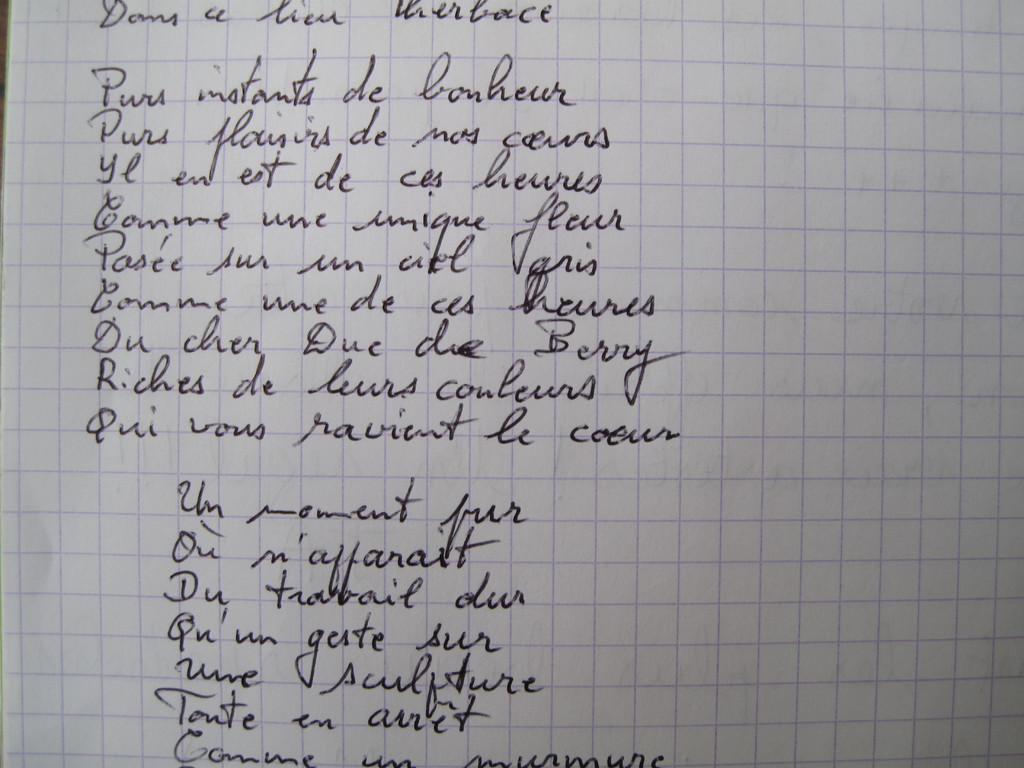 Dans ce lieu
Purs instants de bonheur
Purs plaisirs de nos cœurs
Il en est de ces heures
Comme une unique fleur
Posée sur un ciel gris
Comme une de ces heures
Du cher Duc de Berry
Riches de leurs couleurs
Qui vous ravient le cœur
Un moment pur
Où n'apparaît
Du travail dur
Qu'un geste sur
Une sculpture
Toute en arrêt
Comme un murmure